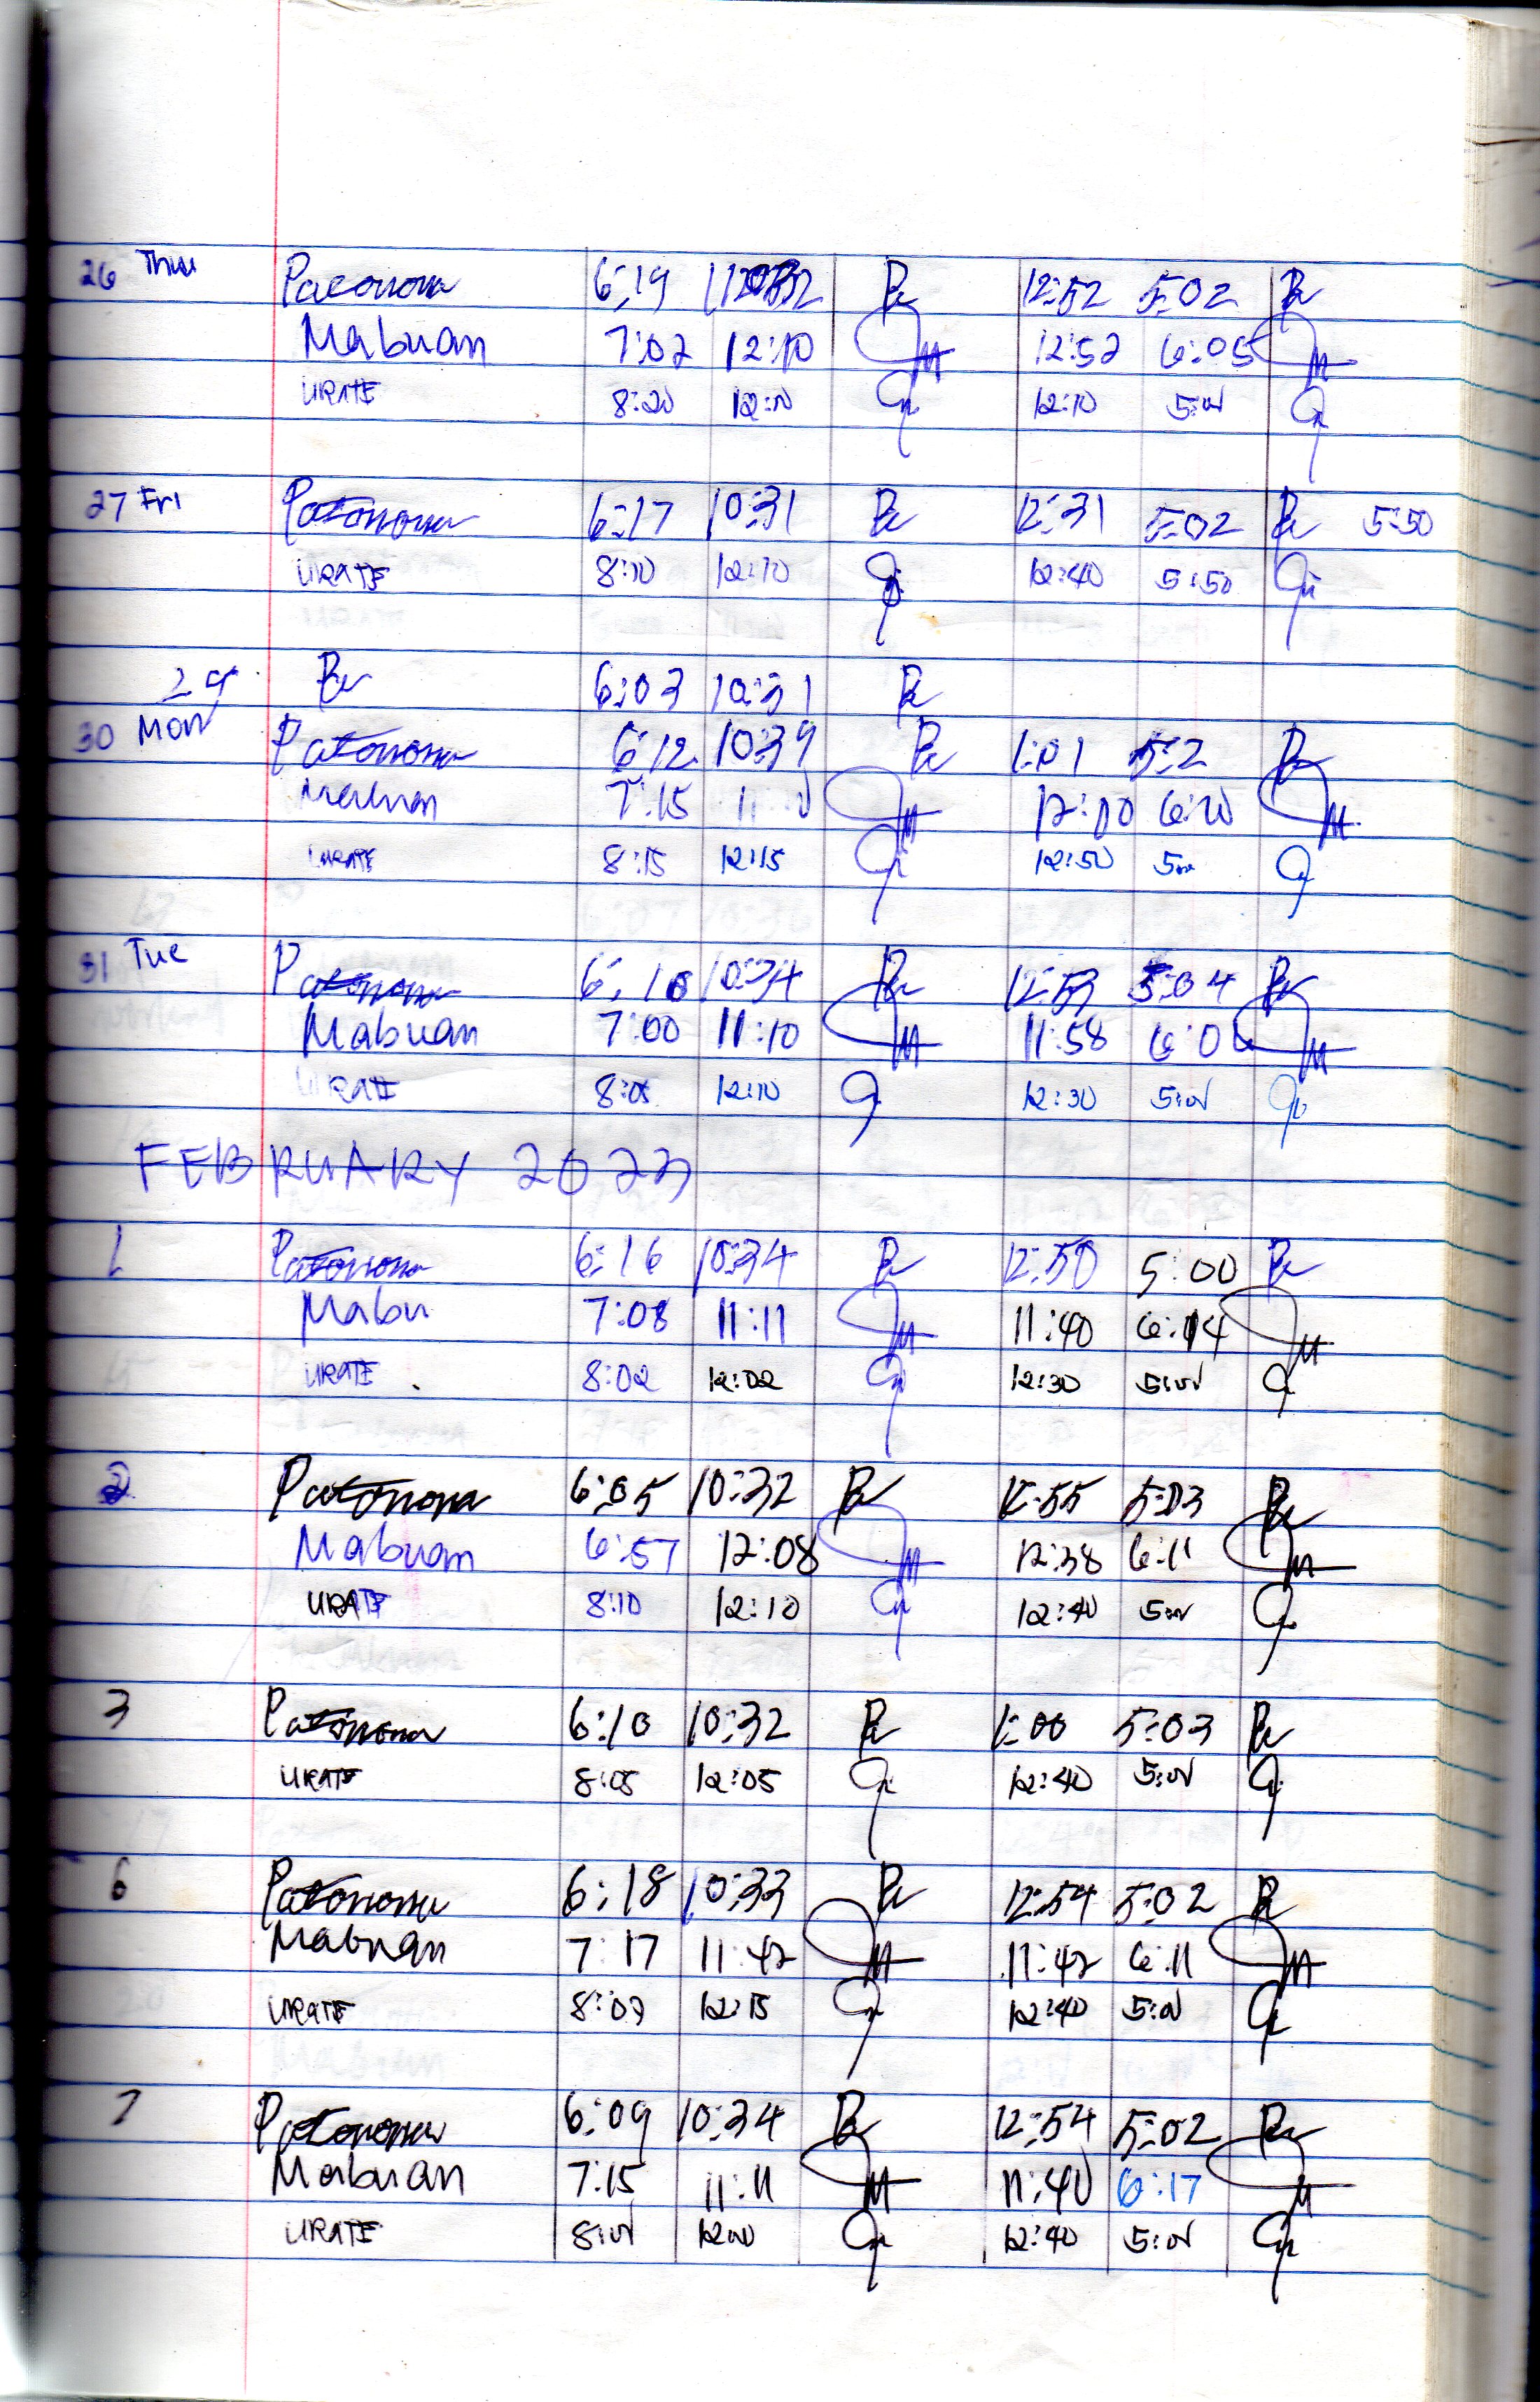 26 Thu Patonona 6:19 Pe 12:52 5:02 Pe
Mabuan 7:02 12:10 M 12:52 6:05 M
URATE 8:20 12:10 12:10 5:00
27 Fri Patonona 6:17 10:31 Pe 12:31 5:02 Pe 5:50
URATE 8:10 12:10 12:40 5:50
29 Pe 6:03 10:31 Pe
30 Mon Patonona 6:12 10:39 Pe 1:01 5:2 Pe
Mabuan 7:15 M 12:10 6:10 M
URATE 8:15 12:15 12:50 5:00
31 Tue Patonona 6:10 10:34 Pe 12:53 5:04 Pe
Mabuan 7:00 11:10 M 11:58 6:06 M
URATE 8:05 12:10 12:30 5:00
FEBRUARY 2023
1 Patonona 6:16 10:34 Pe 12:50 5:00 Pe
Mabu 7:08 11:11 M 11:40 6:14 M
URATE 8:02 12:02 12:30 5:00
2 Patonona 6:05 10:32 Pe 12:55 5:03 Pe
Mabuan 6:57 12:08 M 12:38 6:11 M
URATE 8:10 12:10 12:40 5:00
3 Patonona 6:10 10:32 Pe 1:00 5:03 Pe
URATE 8:05 12:05 12:40 5:00
6 Patonona 6:18 10:33 Pe 12:54 5:02 Pe
Mabuan 7:17 11:42 M 11:42 6:11 M
URATE 8:07 12:15 12:40 5:00
7 Patonona 6:09 10:34 Pe 12:54 5:02 Pe
Mabuan 7:15 11:11 M 11:40 6:17 M
URATE 8:00 12:00 12:40 5:00